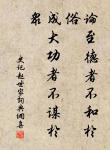 論至德者不和於
俗
成大功者不謀於
眾
史記趙世家詞典網書